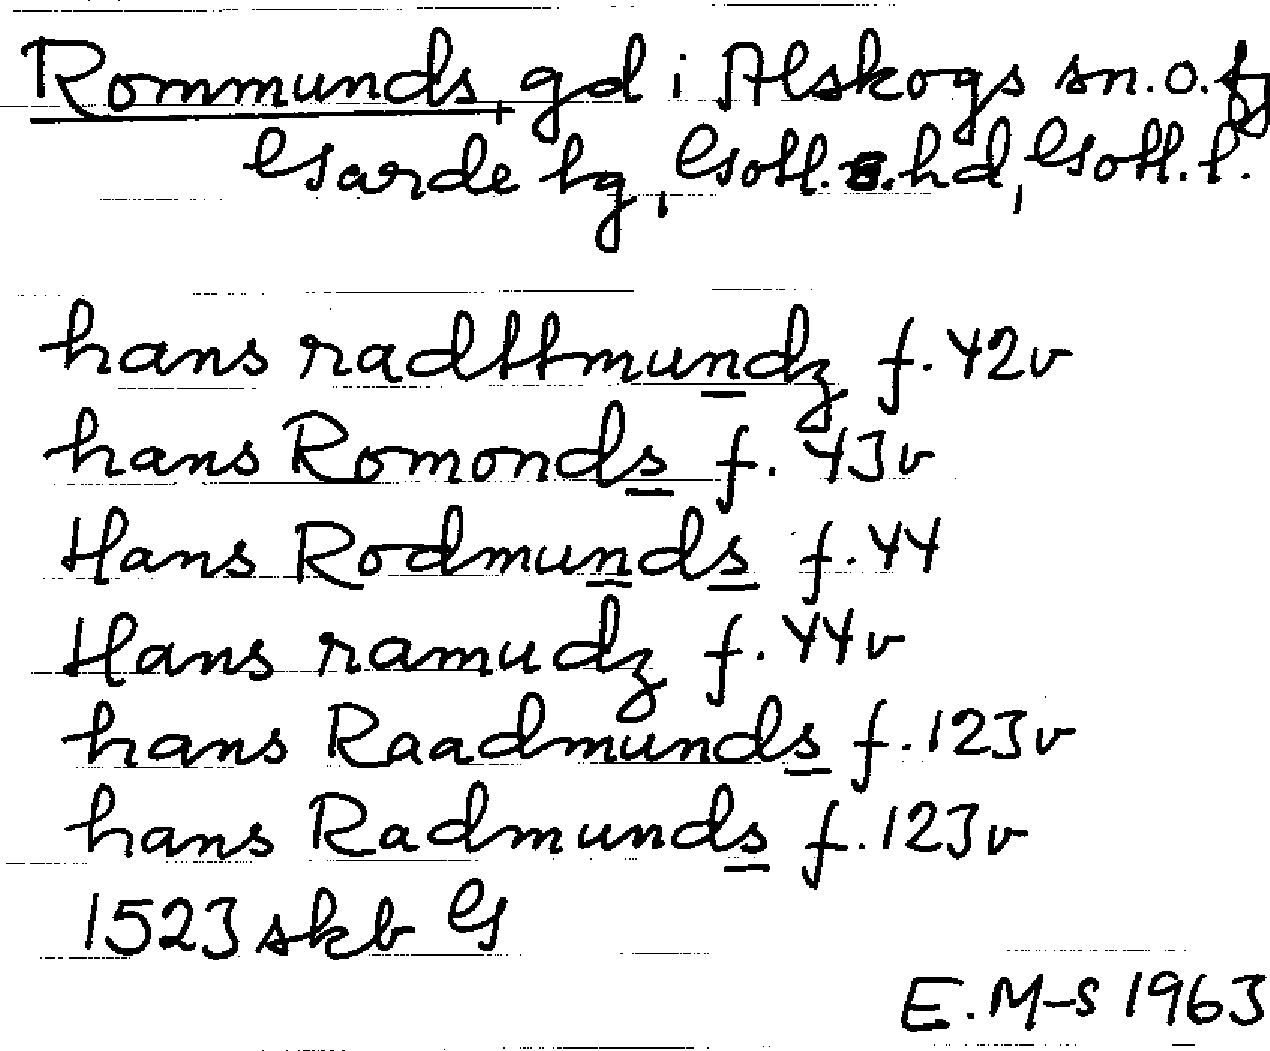 Rommunds, gd i Alskogs sn. o. fg
Garde tg, Gotl. s. hd, Gotl. l.
hans radttmundz f. 42v
hans Romonds f. 43v
Hans Rodmunds f. 44
Hans ramudz f. 44v
hans Raadmunds f. 123v
hans Radmunds f. 123v
1523 skb G
E. M-s 1963